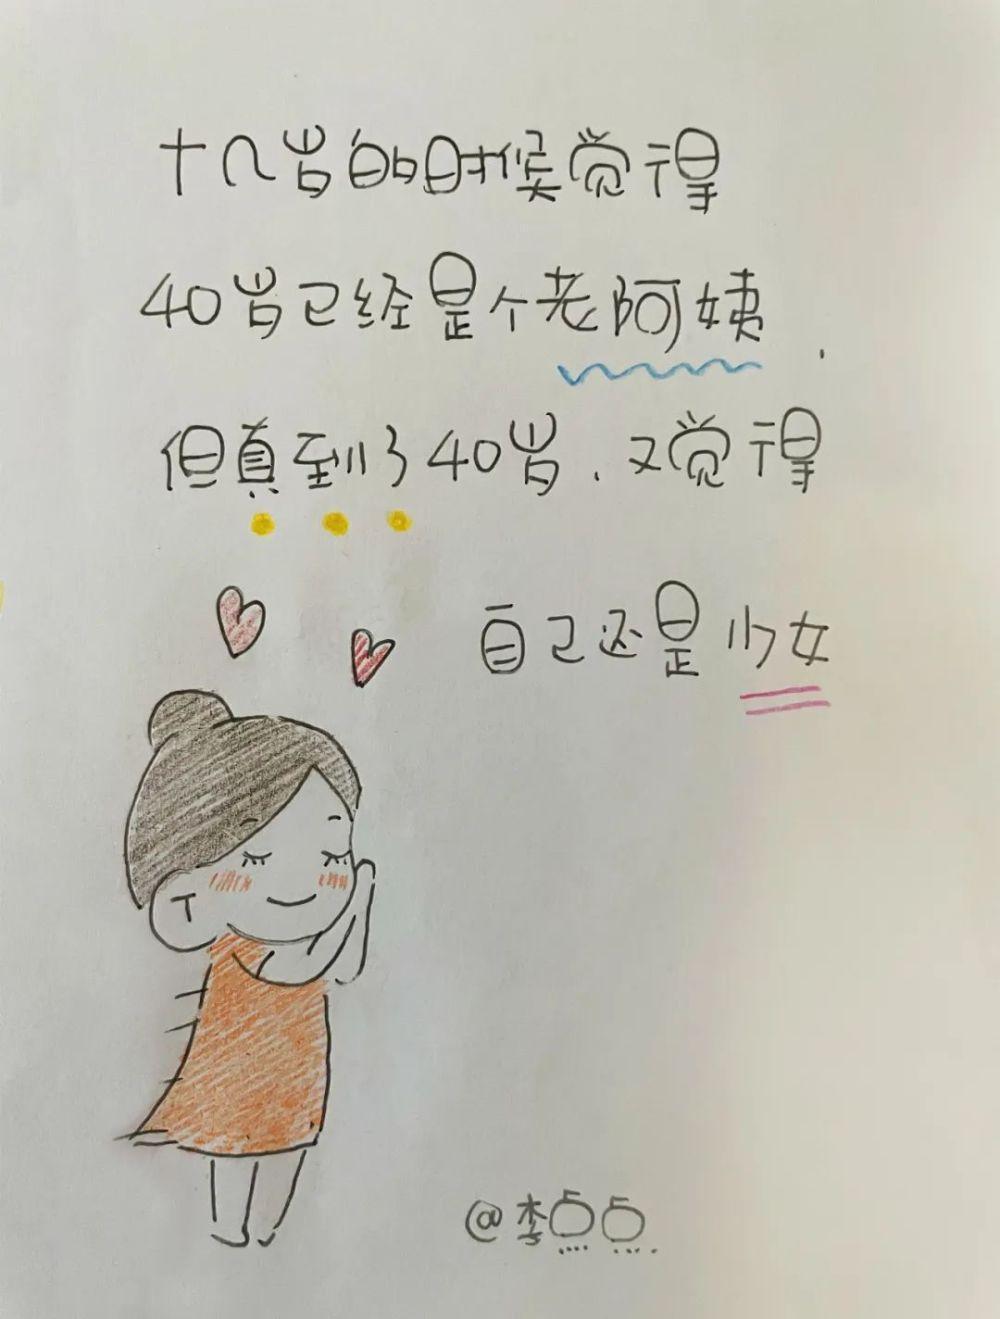 十几岁的时候觉得
40岁已经是个老阿姨.
但真到了40岁.又觉得
自己还是少女
@李点点